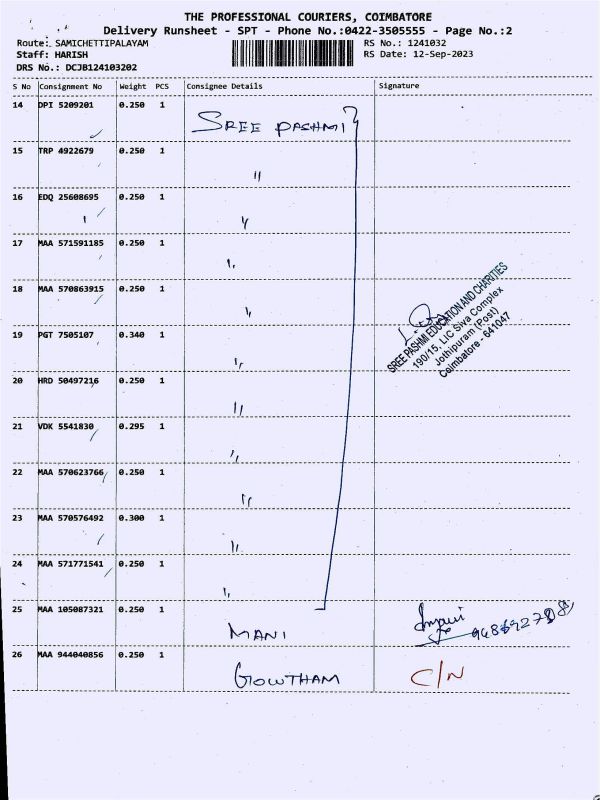 THE PROFESSIONAL COURIERS, COIMBATORE
Delivery Runsheet - SPT - Phone No.:0422-3505555 - Page No.:2
Route: SAMICHETTIPALAYAM RS No.: 1241032
Staff: HARISH RS Date: 12-Sep-2023
DRS No.: DCJB124103202
S No Consignment No Weight PCS Consignee Details Signature
14 DPI 5209201 0.250 1 SREE PASHMI
15 TRP 4922679 0.250 1 "
16 EDQ 25608695 0.250 1 "
17 MAA 571591185 0.250 1 "
18 MAA 570863915 0.250 1 "
SREE PASHMI EDUCATION AND CHARITIES
190/15, LIC Siva Complex
Jothipuram (Post)
Coimbatore - 641047
19 PGT 7505107 0.340 1 "
20 HRD 50497216 0.250 1 "
21 VDK 5541830 0.295 1 "
22 MAA 570623766 0.250 1 "
23 MAA 570576492 0.300 1 "
24 MAA 571771541 0.250 1 "
25 MAA 105087321 0.250 1 MANI
26 MAA 944040856 0.250 1 GOWTHAM C/N